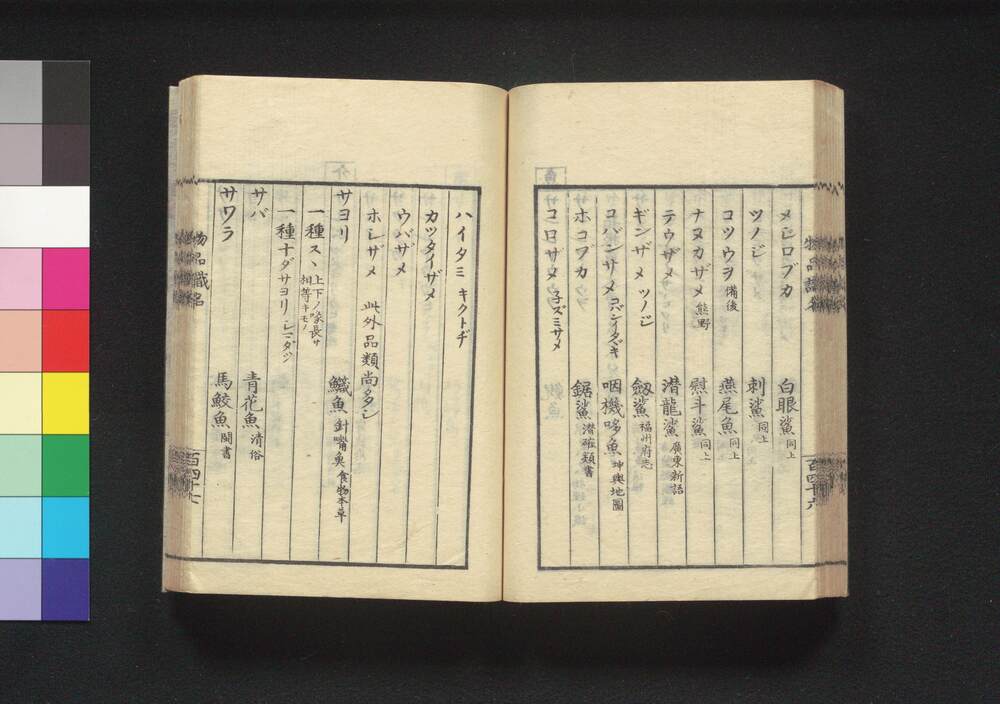 メジロブカ 白眼鯊 同上
ツノジ 刺鯊 同上
コツウヲ 備後 燕尾魚 同上
ナヌカザメ 熊野 熨斗鯊 同上
テウザメ 潜龍鯊 廣東新語
ギンザメ ツノジ 劔鯊 福州府志
コバンサメ コバンイタヾキ 咽機哆魚 坤輿地圖
ホコブカ 鋸鯊 潜確類書
コロザメ 子ズミサメ
百四十六
ハイタミ キクトヂ
カツタイザメ
ウバザメ
ホシザメ 此外品類尚多シ
サヨリ 鱵魚 針嘴魚 食物本草
一種スヽ 上下ノ喙長サ相等キモノ
一種ナダサヨリ
サバ 青花魚 清俗
サワラ 馬鮫魚 閩書
物品識名
百四十七